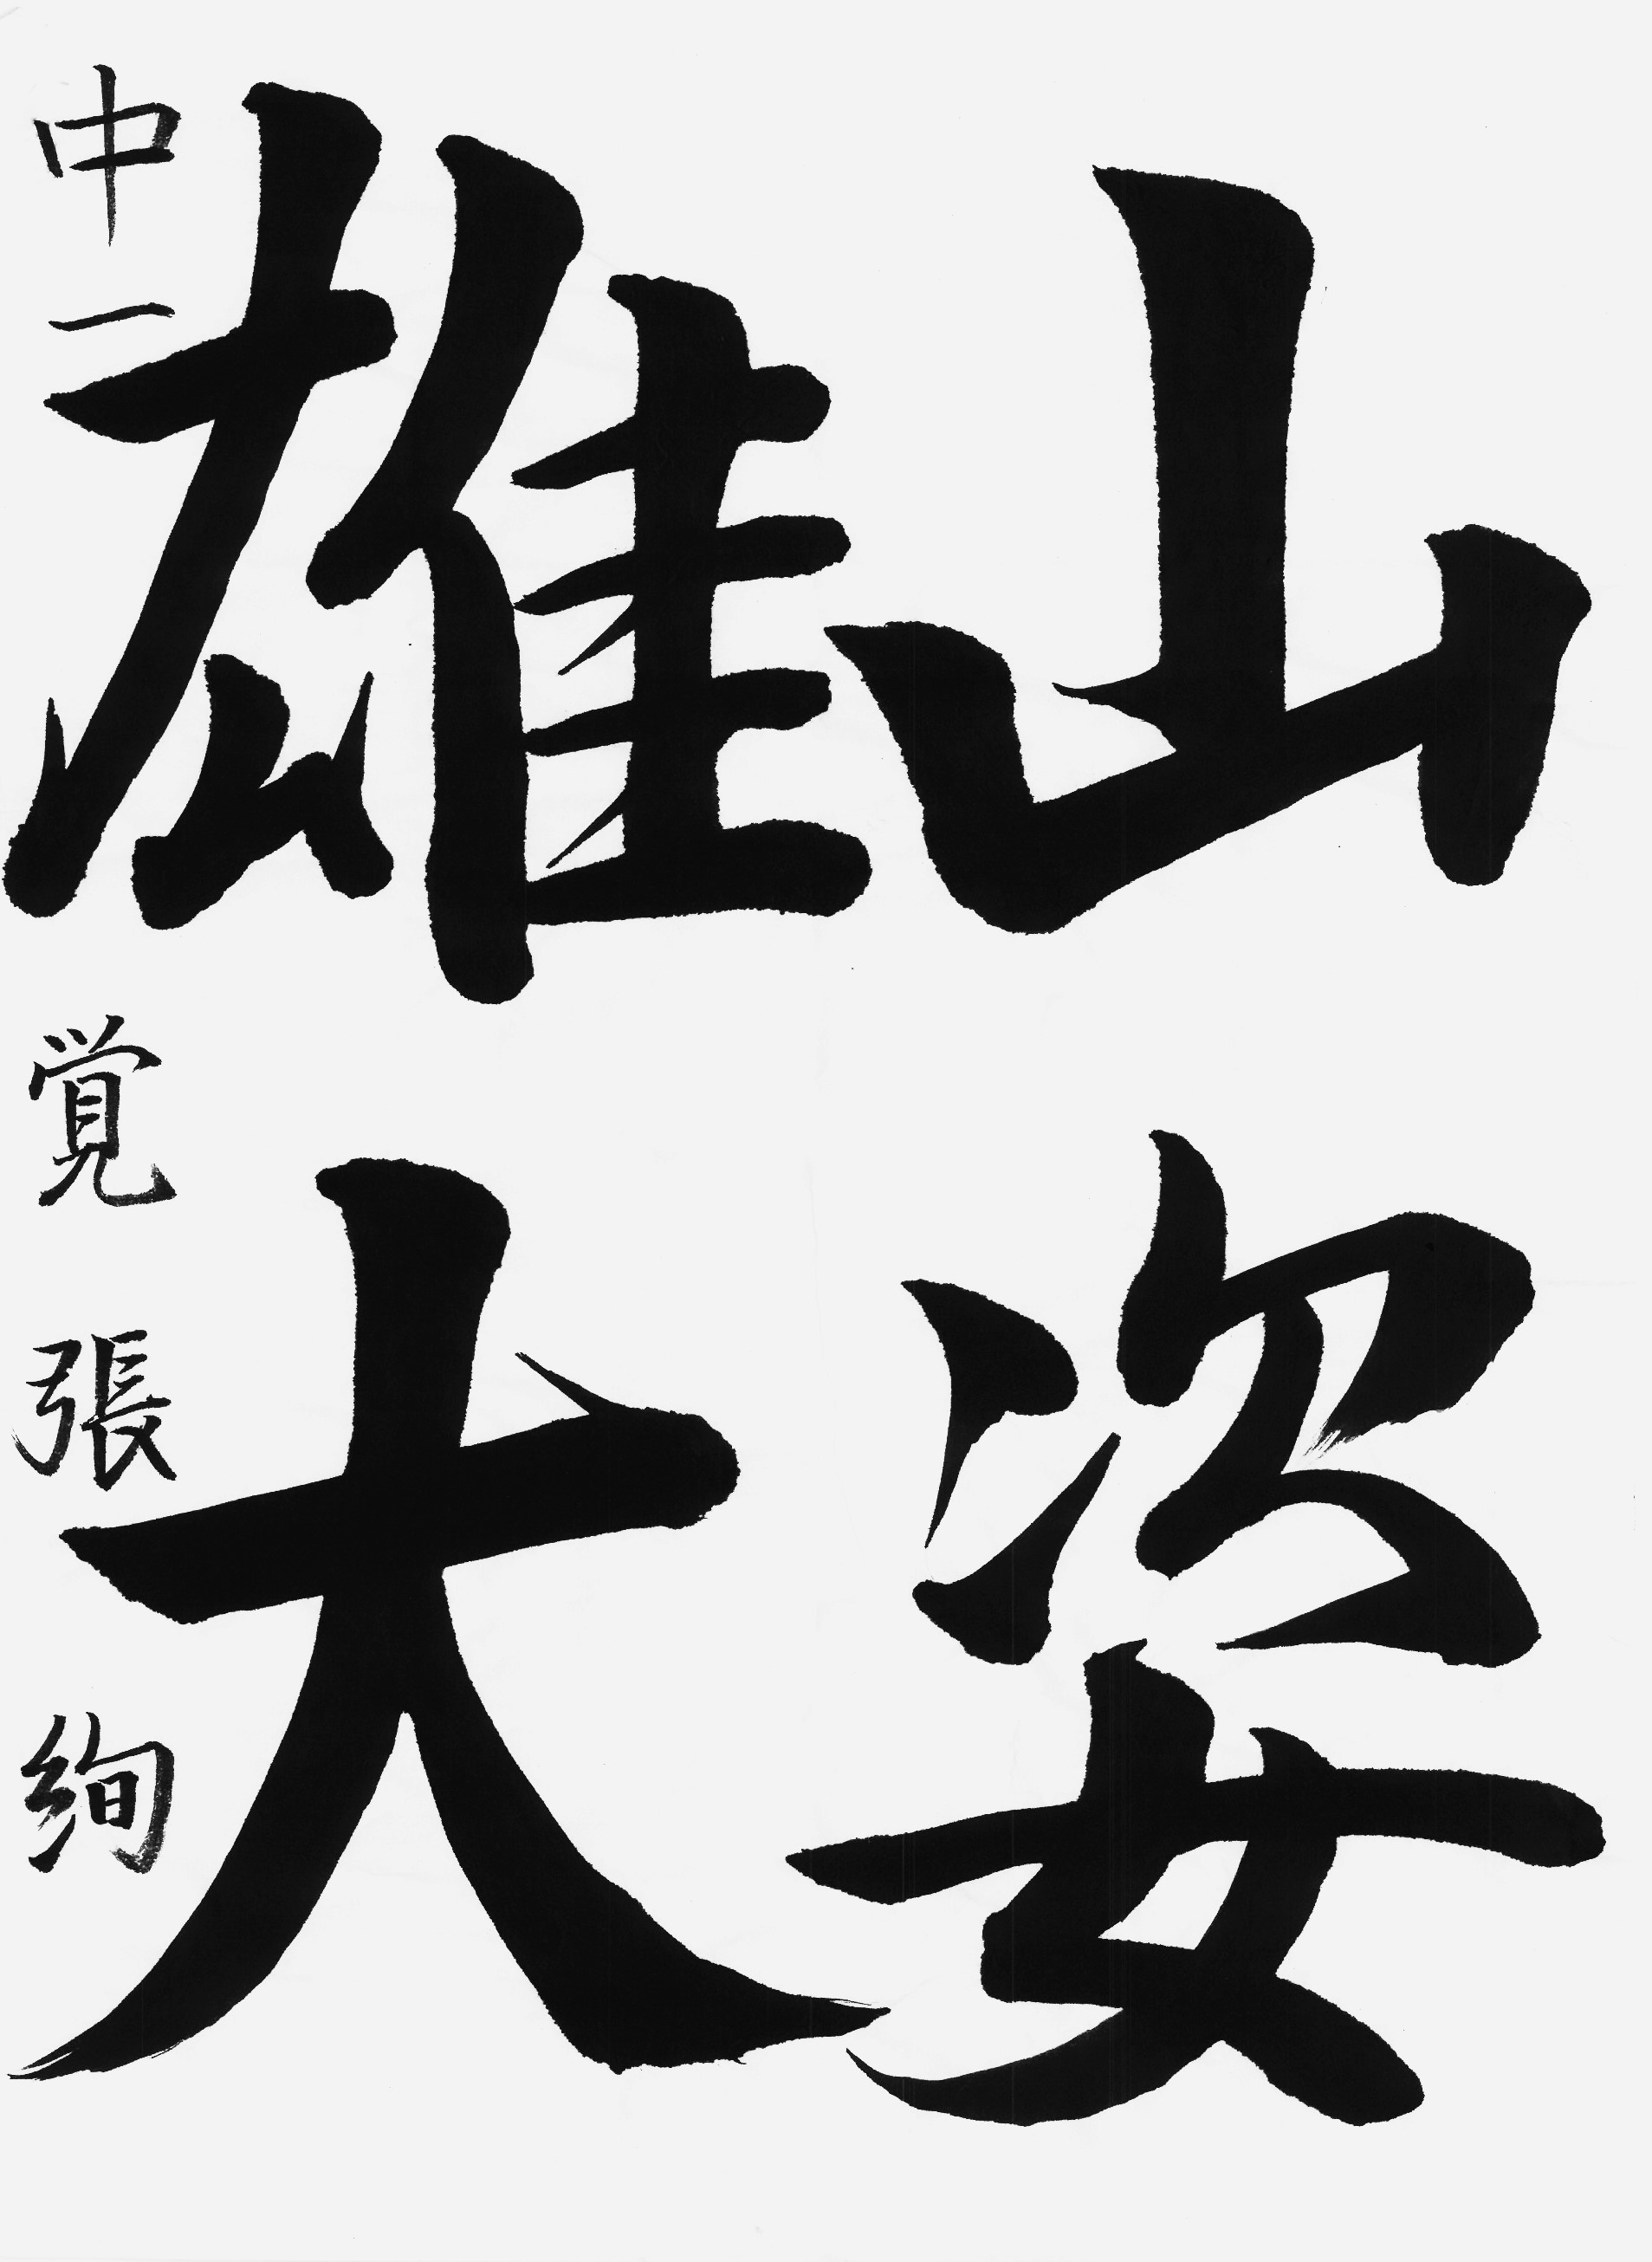 山姿
雄大
中一 覚張絢